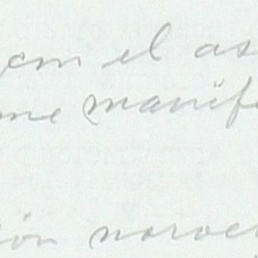 con el as
me manif
ión norue